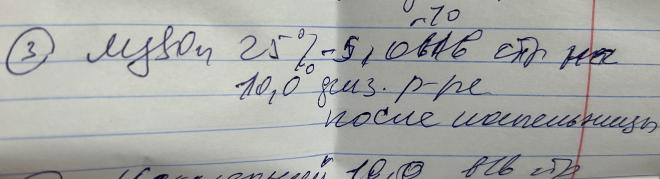 ~10
③ MgSO4 25% - 5,0 в/в стр на
10,0 физ. р-ре
после капельницы
10,0 в/в стр